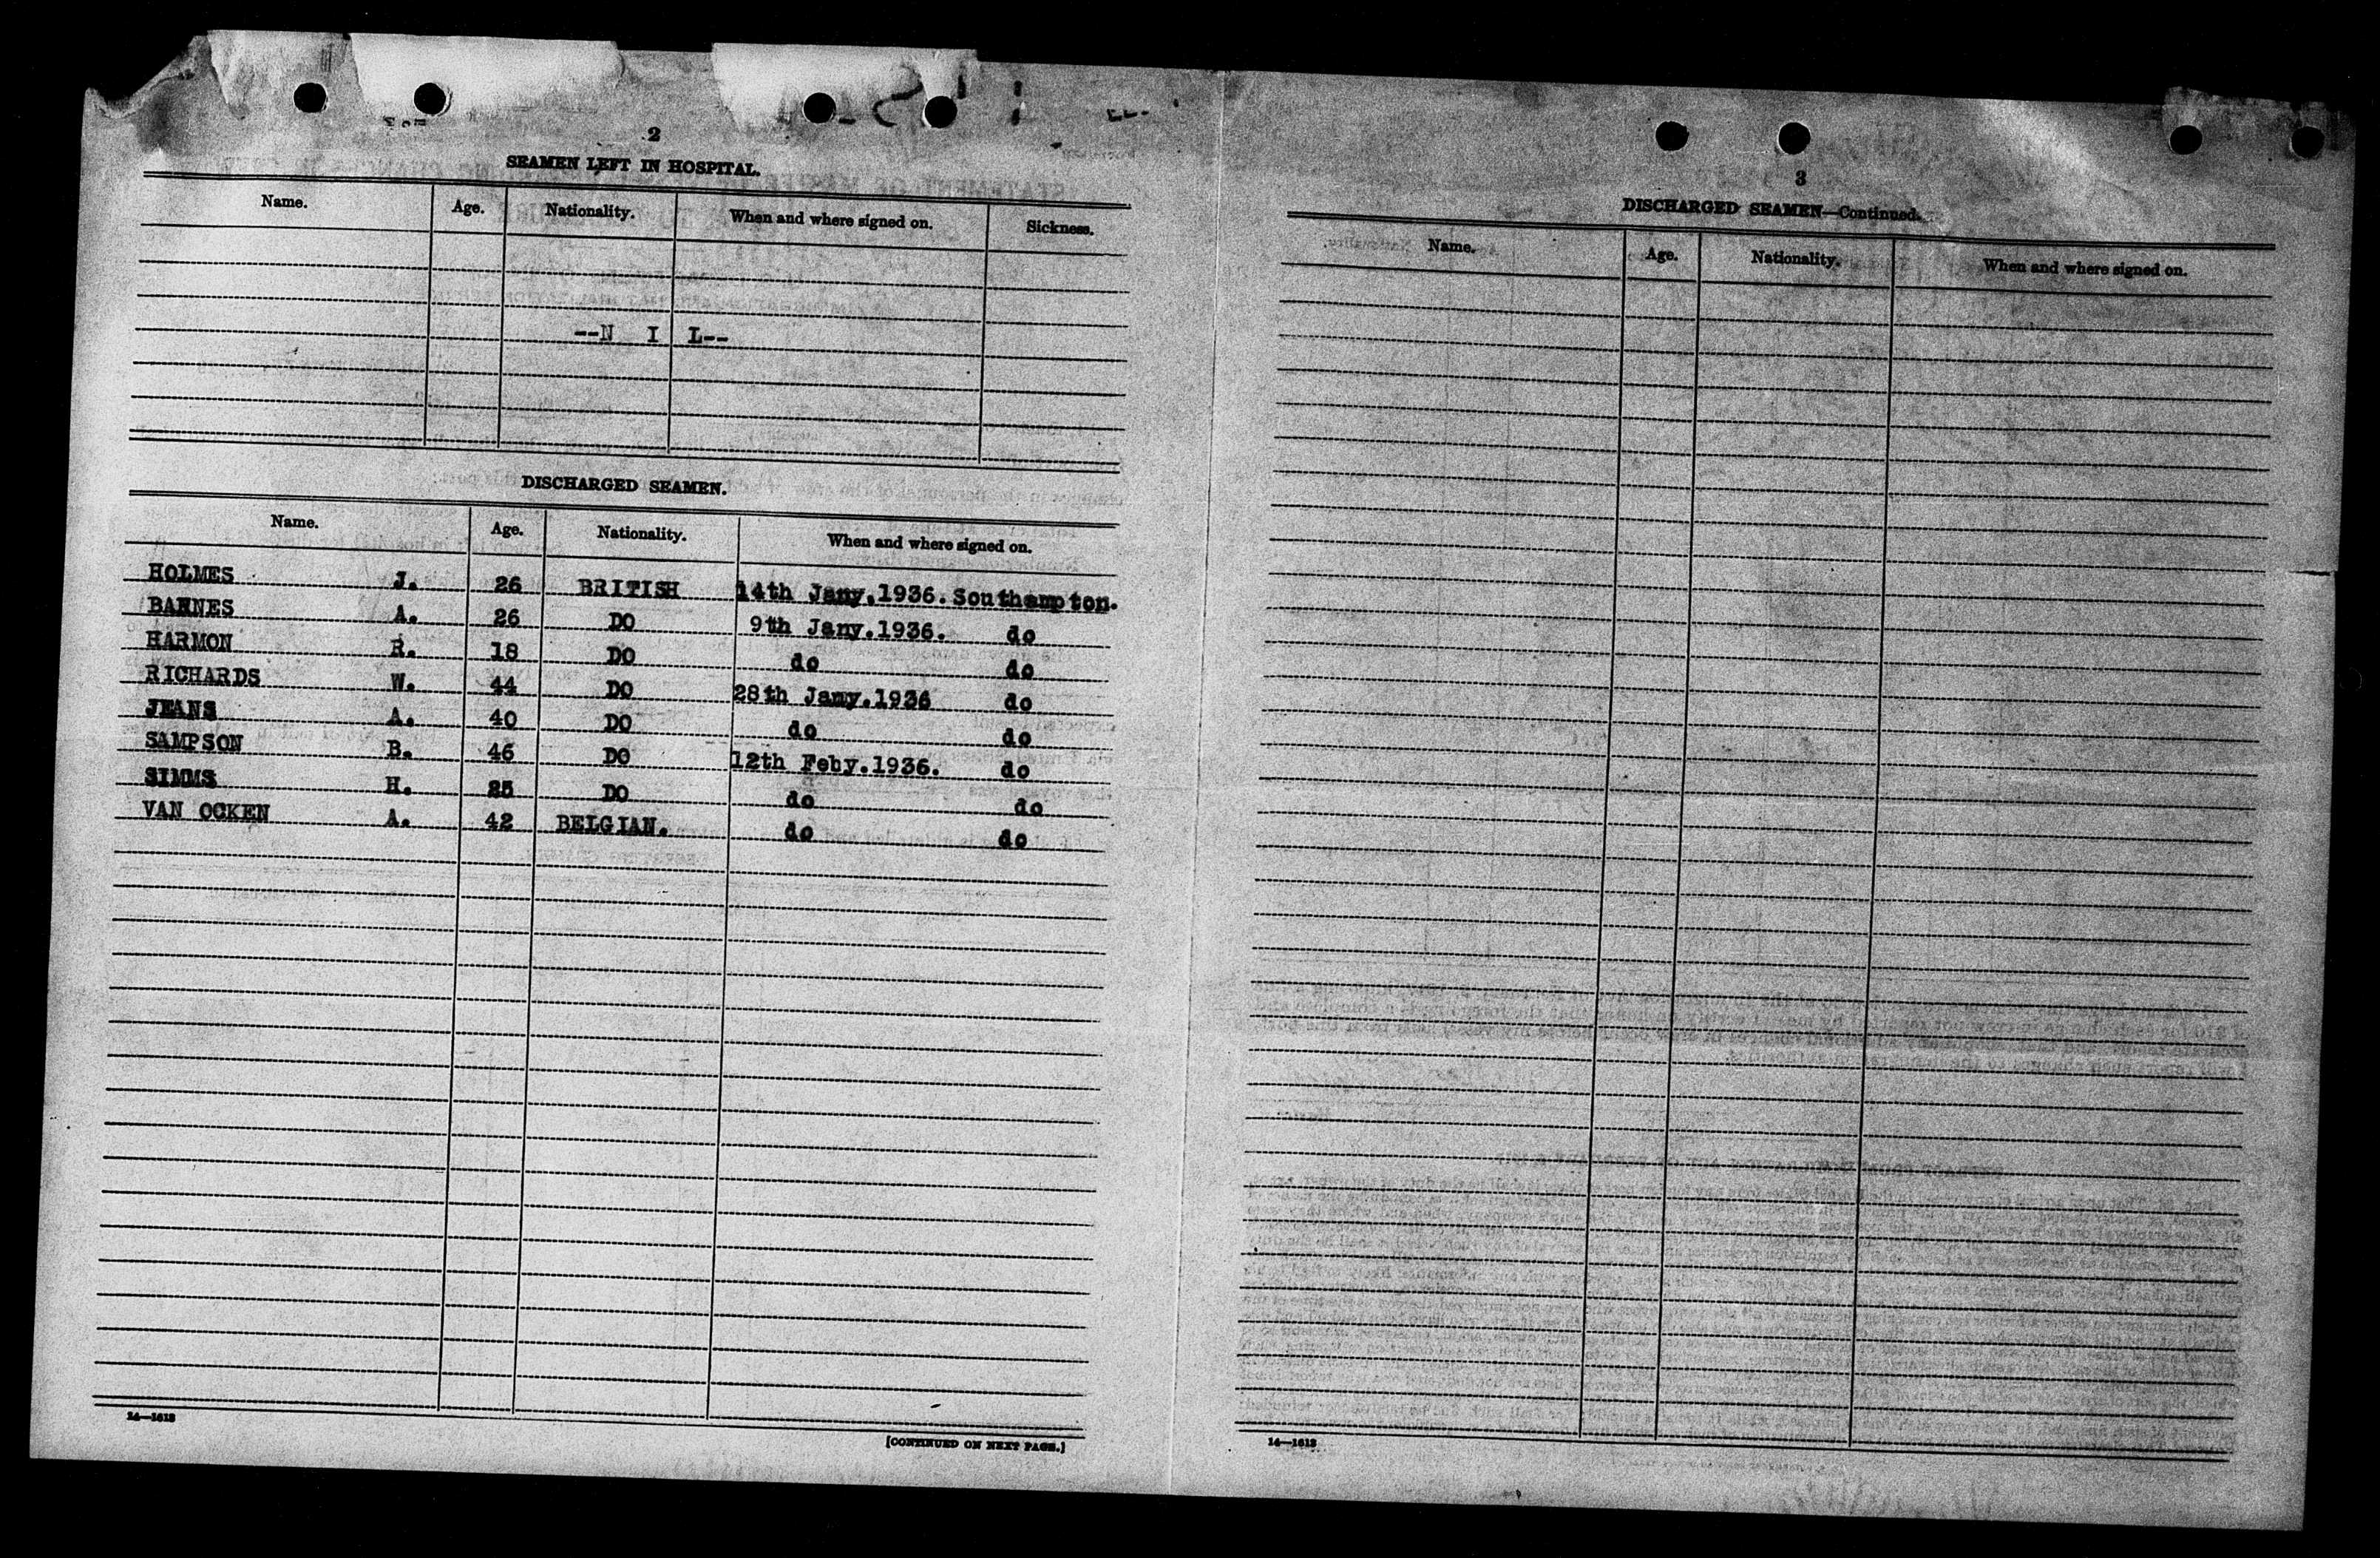 2
SEAMEN LEFT IN HOSPITAL.
Name. Age. Nationality. When and where signed on. Sickness.
--N I L--
DISCHARGED SEAMEN.
Name. Age. Nationality. When and where signed on.
HOLMES J. 26 BRITISH 14th Jany.1936. Southampton.
BARNES A. 26 DO 9th Jany.1936. do
HARMON R. 18 DO do do
RICHARDS W. 44 DO 28th Jany.1936 do
JEANS A. 40 DO do do
SAMPSON B. 46 DO 12th Feby.1936. do
SIMMS H. 25 DO do do
VAN OCKEN A. 42 BELGIAN. do do
14—1613
[CONTINUED ON NEXT PAGE.]
3
DISCHARGED SEAMEN—Continued.
Name. Age. Nationality. When and where signed on.
14—1613